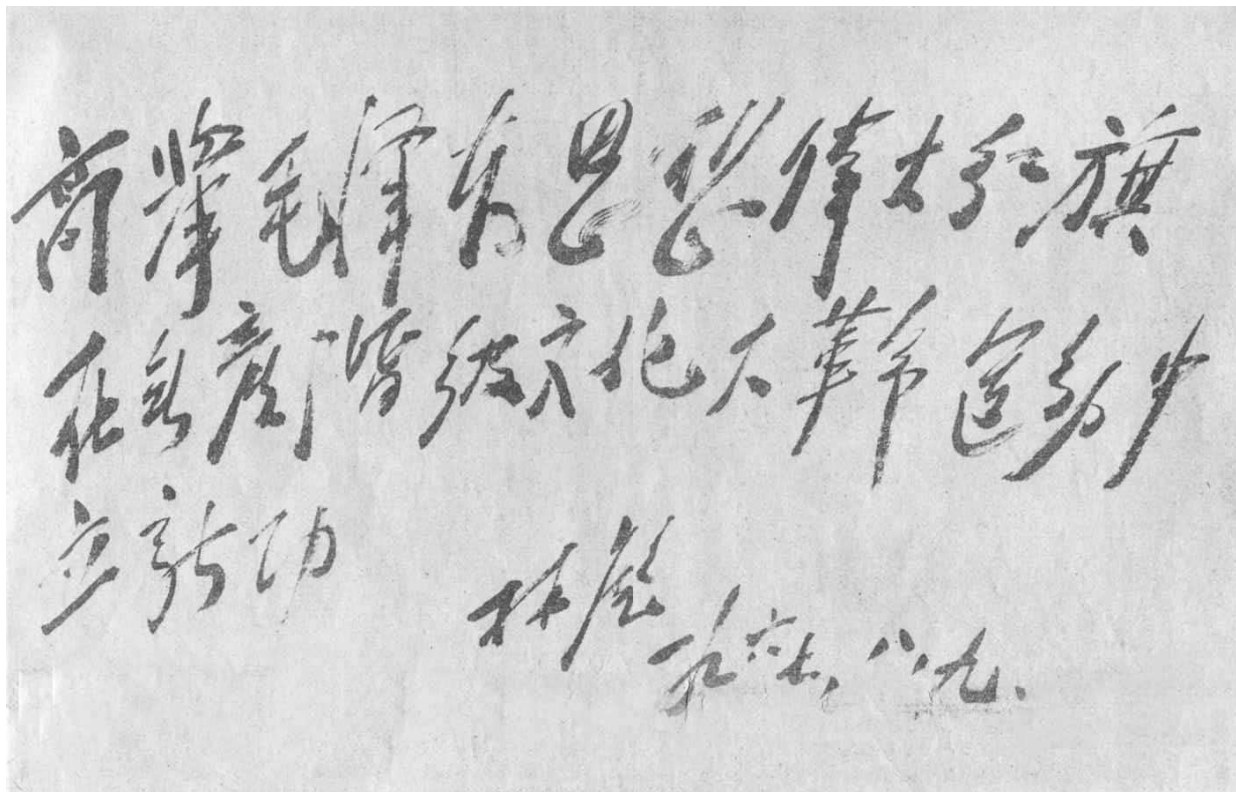 高举毛泽东思想伟大红旗
在無产階级文化大革命运动中
立新功
林彪
一九六七，八，九．